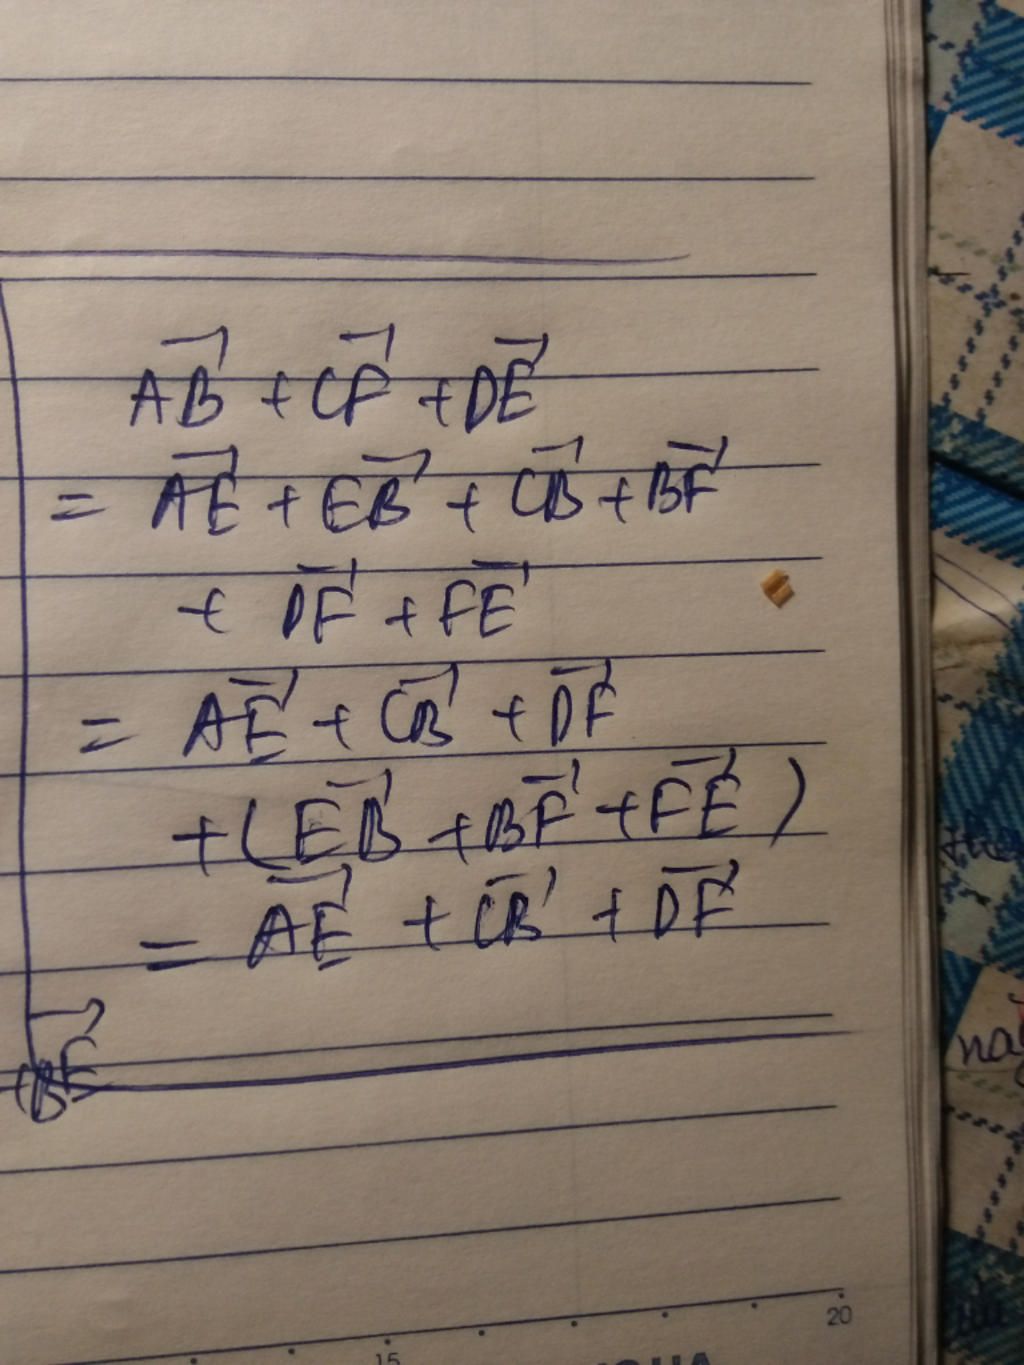 AB⃗ + CF⃗ + DE⃗
= AE⃗ + EB⃗ + CB⃗ + BF⃗
+ DF⃗ + FE⃗
= AE⃗ + CB⃗ + DF⃗
+ (EB⃗ + BF⃗ + FE⃗)
= AE⃗ + CB⃗ + DF⃗
+BE⃗
the
15
20